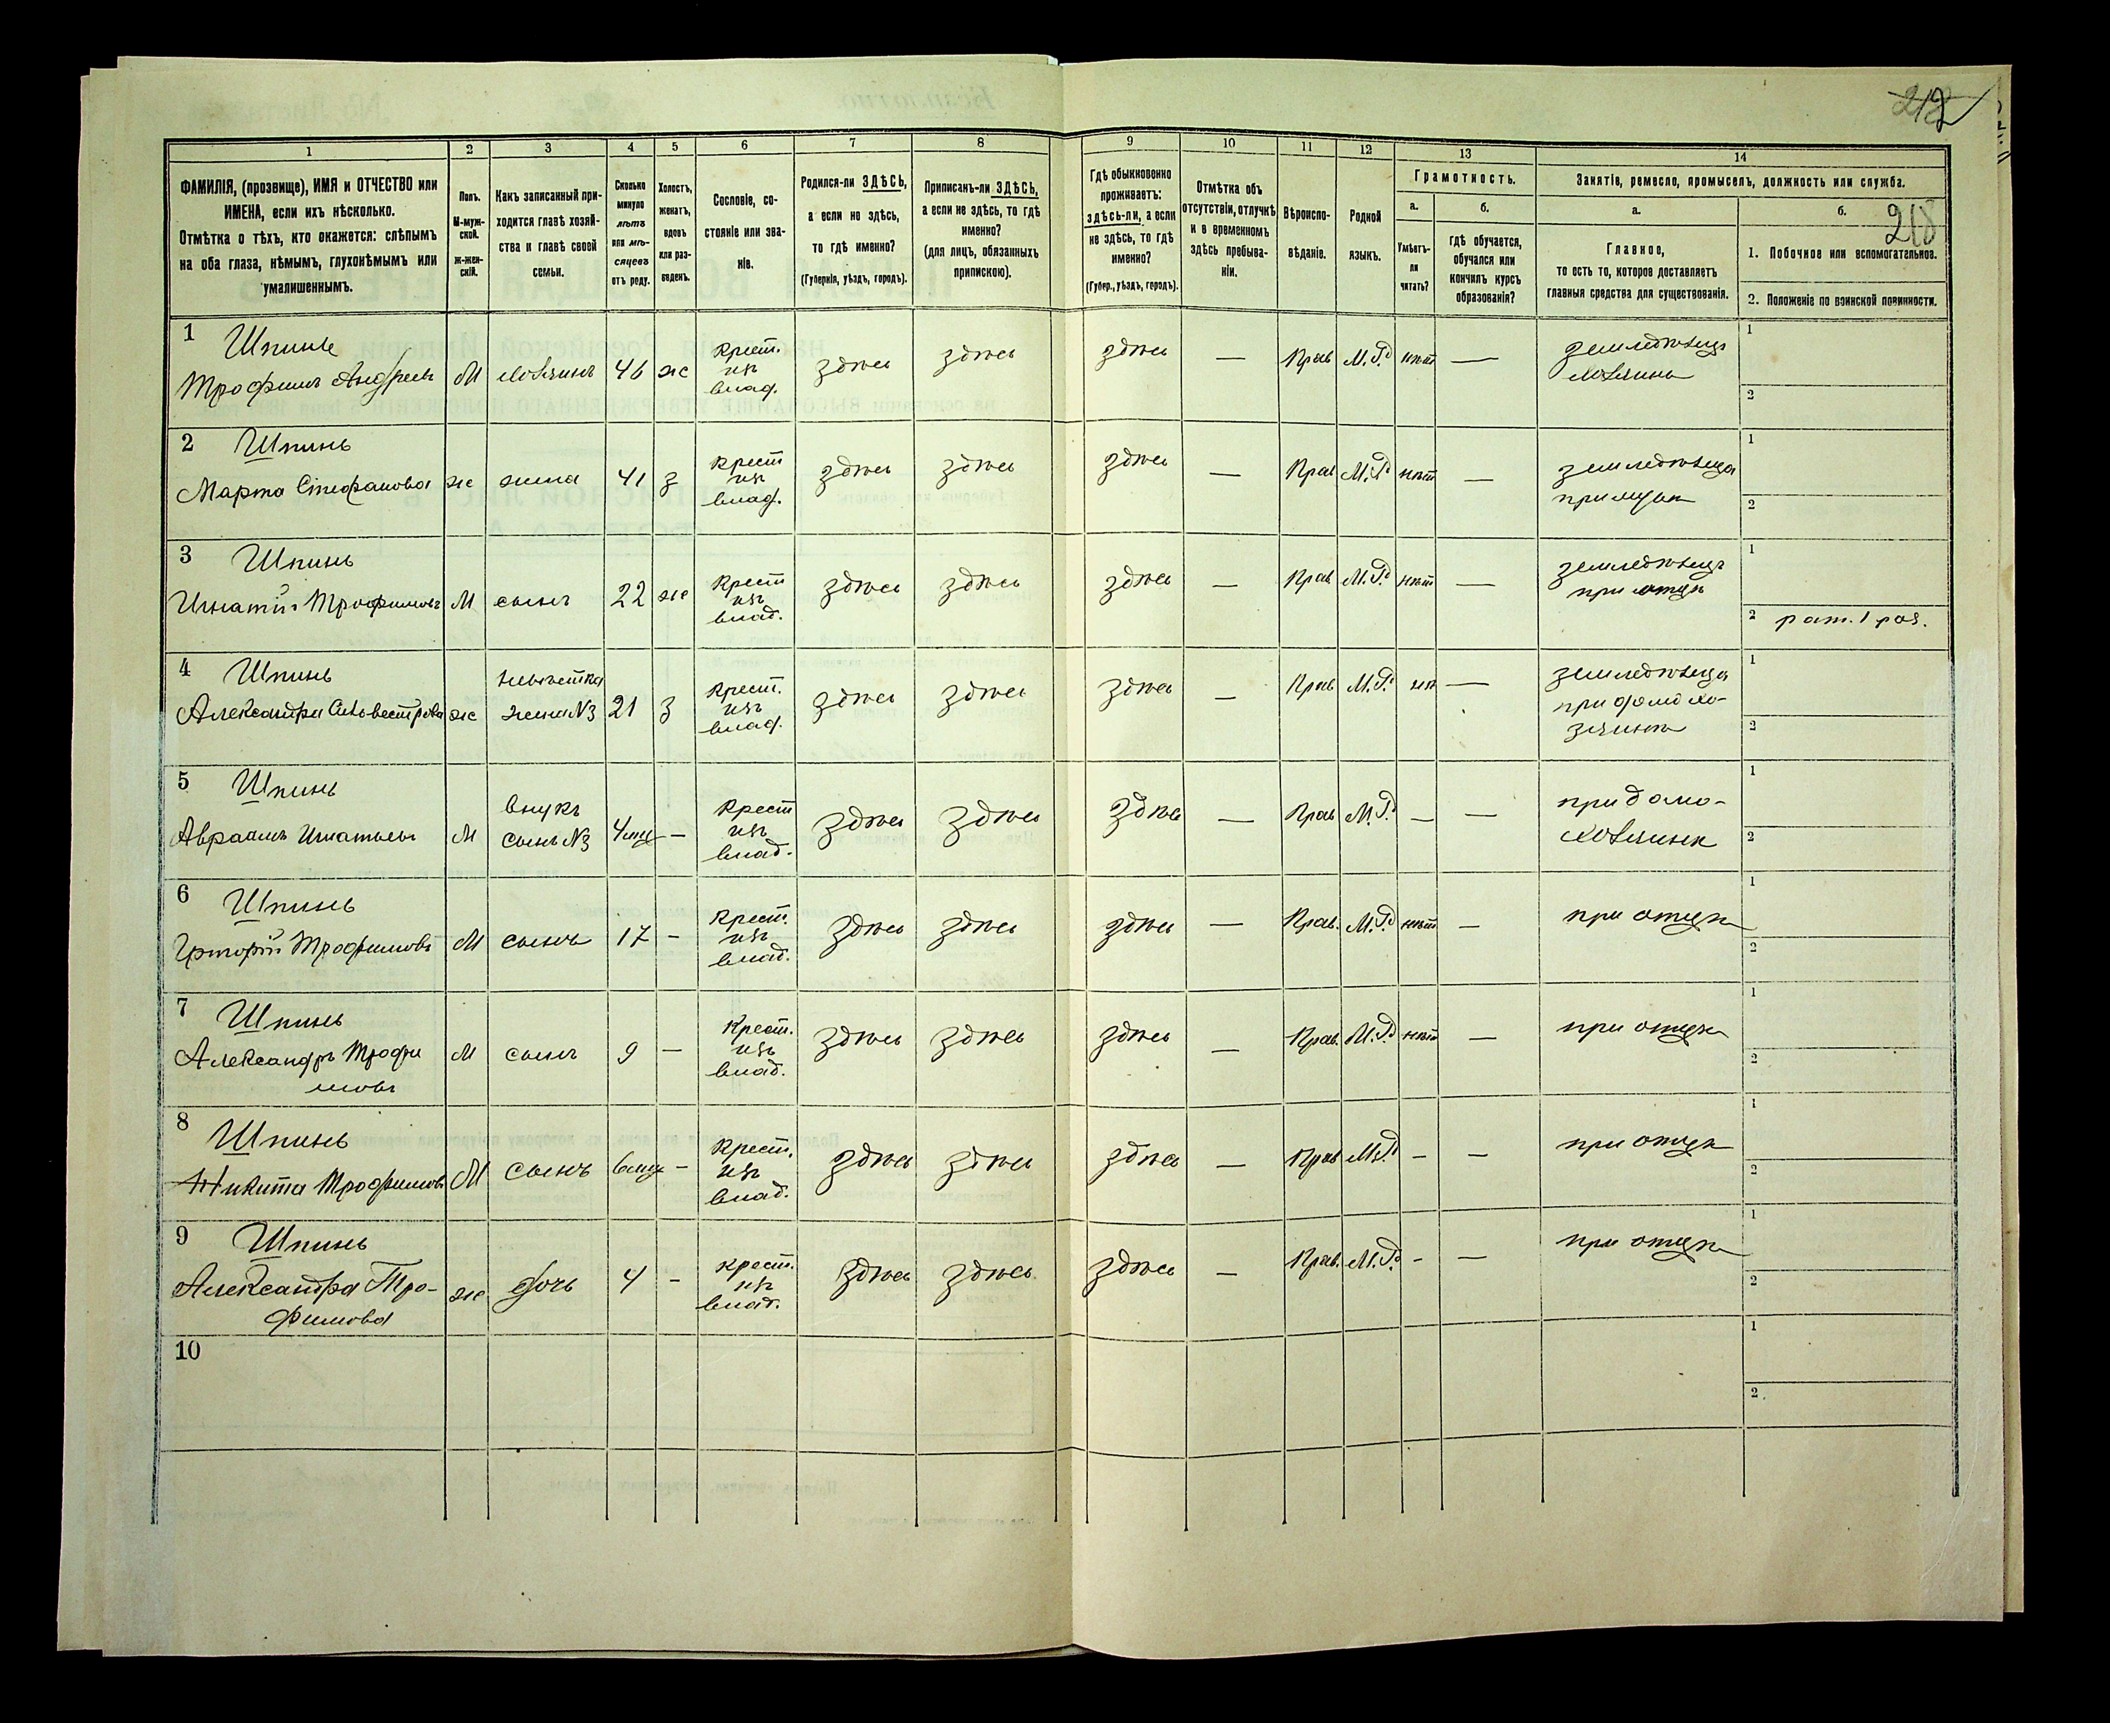 212
218
1 2 3 4 5 6 7 8 9 10 11 12 13 14
ФАМИЛІЯ, (прозвище), ИМЯ и ОТЧЕСТВО или
ИМЕНА, если ихъ нѣсколько.
Отмѣтка о тѣхъ, кто окажется: слѣпымъ
на оба глаза, нѣмымъ, глухонѣмымъ или
умалишеннымъ.
Полъ.
М-муж-
ской.
ж-жен-
скій.
Какъ записанный при-
ходится главѣ хозяй-
ства и главѣ своей
семьи.
Сколько
минуло
лѣтъ
или мѣ-
сяцевъ
отъ роду.
Холостъ,
женатъ,
вдовъ
или раз-
веденъ.
Сословіе, со-
стояніе или зва-
ніе.
Родился-ли ЗДѢСЬ,
а если не здѣсь,
то гдѣ именно?
(Губернія, уѣздъ, городъ).
Приписанъ-ли ЗДѢСЬ,
а если не здѣсь, то гдѣ
именно?
(для лицъ, обязанныхъ
припискою).
Гдѣ обыкновенно
проживаетъ:
здѣсь-ли, а если
не здѣсь, то гдѣ
именно?
(Губер., уѣздъ, городъ).
Отмѣтка объ
отсутствіи, отлучкѣ
и о временномъ
здѣсь пребыва-
ніи.
Вѣроиспо-
вѣданіе.
Родной
языкъ.
Грамотность.
а.
Умѣетъ-
ли
читать?
б.
Гдѣ обучается,
обучался или
кончилъ курсъ
образованія?
Занятіе, ремесло, промыселъ, должность или служба.
а.
Главное,
то есть то, которое доставляетъ
главныя средства для существованія.
б.
1. Побочное или вспомогательное.
2. Положеніе по воинской повинности.
1 Шпинь
Трофимъ Андреевъ М хозяинъ 46 ж Крест. изъ влад. здѣсь здѣсь здѣсь — Прав М.Р. нѣт — земледѣлецъ
хозяинъ
1
2
2 Шпинь
Марта Стефанова ж жена 41 з крест изъ влад. здѣсь здѣсь здѣсь — Прав М.Р. нѣт — земледѣлица
при мужѣ
1
2
3 Шпинь
Игнатій Трофимовъ М сынъ 22 ж Крест изъ влад. здѣсь здѣсь здѣсь — Прав М.Р. нѣт — земледѣлецъ
при отцѣ
1
2 рат. 1 раз.
4 Шпинь невѣстка
Александра Сильвестрова ж жена №3 21 з Крест. изъ влад. здѣсь здѣсь здѣсь — Прав М.Р. нѣ — земледѣлица
при домохо-
зяинѣ
1
2
5 Шпинь внукъ
Авраамъ Игнатьевъ М сынъ №3 4 мц — Крест изъ влад. здѣсь здѣсь здѣсь — Прав М.Р. — — при домо-
хозяинѣ
1
2
6 Шпинь
Григорій Трофимовъ М сынъ 17 — Крест. изъ влад. здѣсь здѣсь здѣсь — Прав. М.Р. нѣт — при отцѣ
1
2
7 Шпинь
Александръ Трофи
мовъ М сынъ 9 — Крест. изъ влад. здѣсь здѣсь здѣсь — Прав. М.Р. нѣт — при отцѣ
1
2
8 Шпинь
Никита Трофимовъ М сынъ 6 мц — Крест. изъ влад. здѣсь здѣсь здѣсь — Прав М.Р. — — при отцѣ
1
2
9 Шпинь
Александра Тро-
фимова ж дочь 4 — крест. изъ влад. здѣсь здѣсь здѣсь — Прав. М.Р. — — при отцѣ
1
2
10
1
2